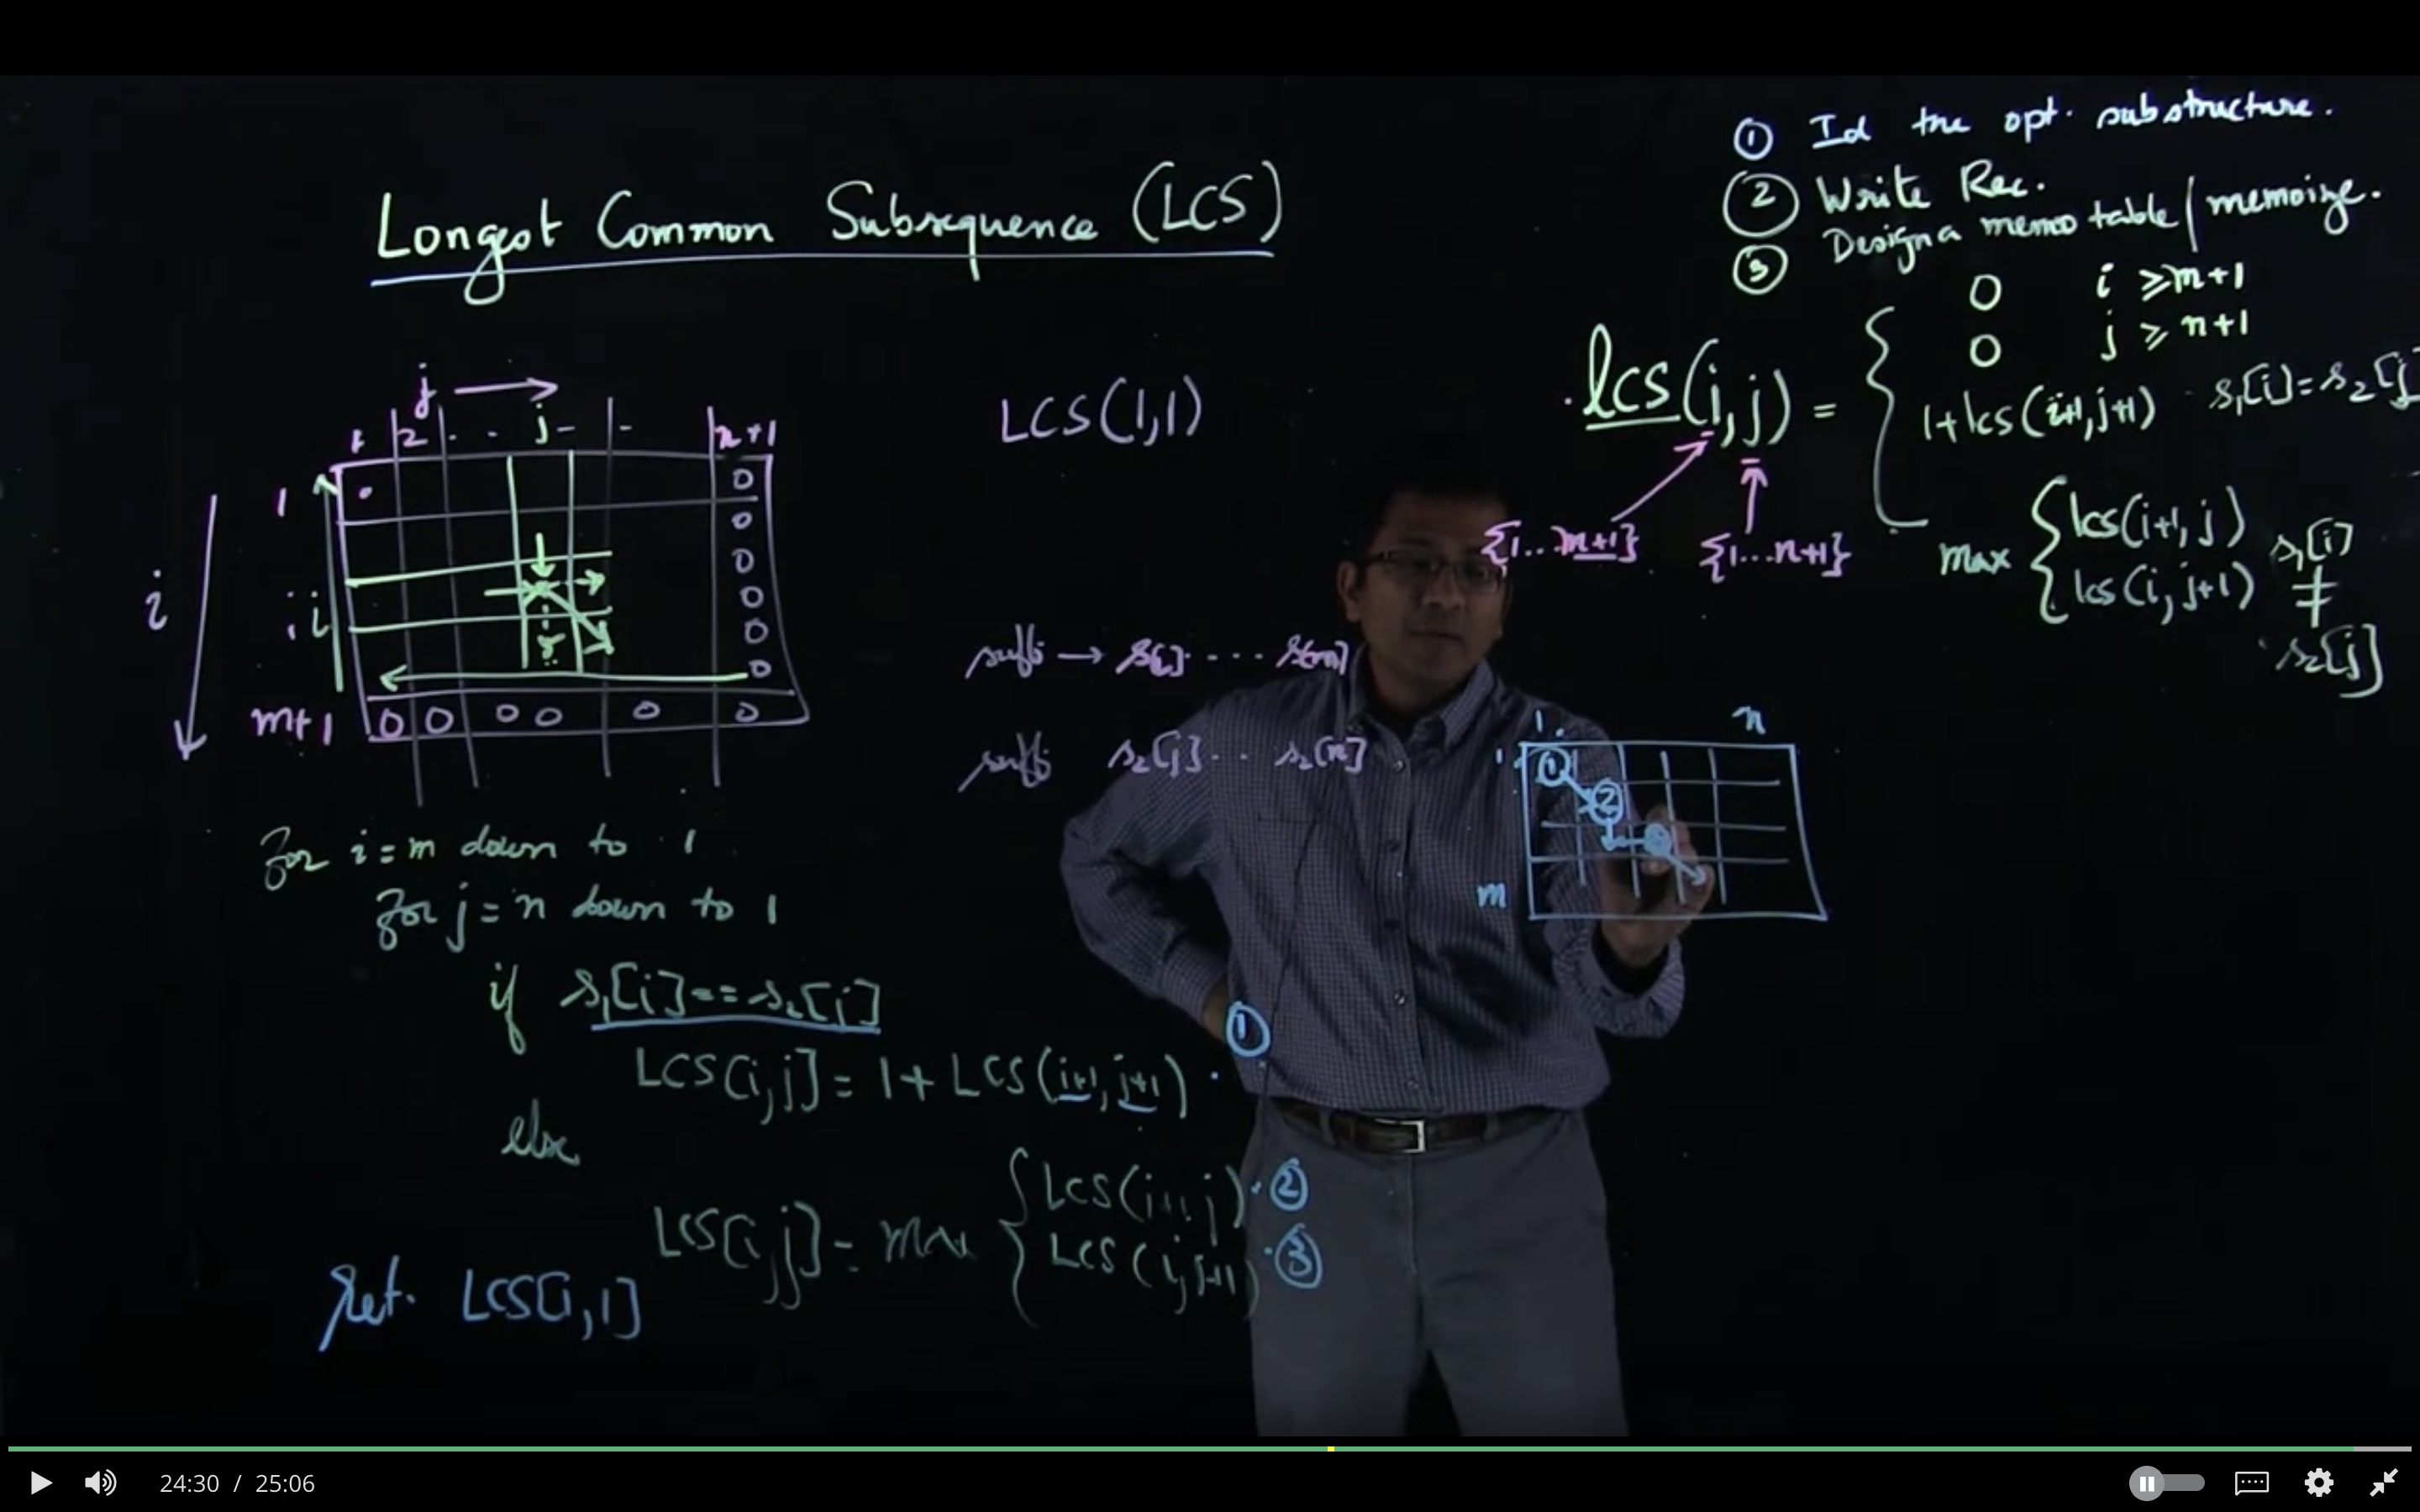 Longest Common Subsequence (LCS)
① Id the opt. substructure.
② Write Rec.
③ Design a memo table / memoize.
lcs(i,j) = {
0 i ≥ m+1
0 j ≥ n+1
1+lcs(i+1,j+1) s₁[i]=s₂[j]
max { lcs(i+1,j)
lcs(i,j+1)
s₁[i] ≠ s₂[j]
{1...m+1} {1...n+1}
LCS(1,1)
j →
1 2 . . j - - n+1
1 0
0
0
i i 0
0
0
m+1 0 0 0 0 0 0
s₂[j] . . s₂[n]
1 n
1 ①
②
m
for i = m down to 1
for j = n down to 1
if s₁[i] == s₂[j]
LCS[i,j] = 1 + LCS(i+1, j+1) ①
else
LCS[i,j] = max { LCS(i+1, j) ②
LCS(i, j+1) ③
ret. LCS[1,1]
24:30 / 25:06